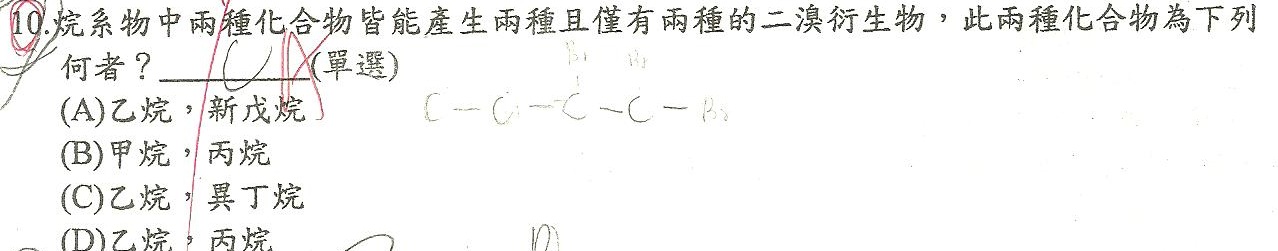 10.烷系物中兩種化合物皆能產生兩種且僅有兩種的二溴衍生物，此兩種化合物為下列
何者？ C A (單選)
Br Br
C-C-C-C-Br
(A)乙烷，新戊烷
(B)甲烷，丙烷
(C)乙烷，異丁烷
(D)乙烷，丙烷